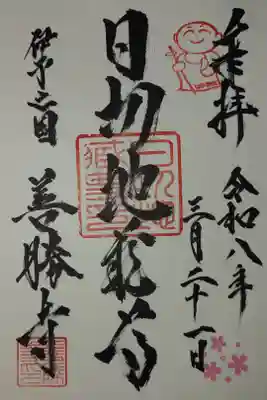 奉拝
令和八年
三月二十一日
日切地蔵尊
善勝寺